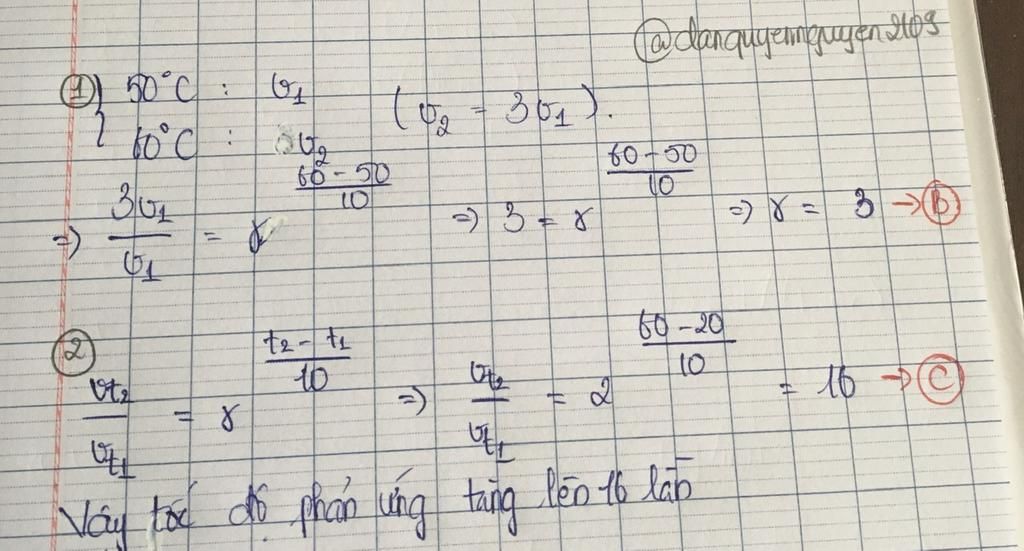 @danquyennguyen2109
① { 50°C : v₁
60°C : v₂ (v₂ = 3v₁).
=> 3v₁/v₁ = γ^((60-50)/10) => 3 = γ^((60-50)/10) => γ = 3 → Ⓑ
②
v_t₂/v_t₁ = γ^((t₂-t₁)/10) => v_t₂/v_t₁ = 2^((60-20)/10) = 16 → Ⓒ
Vậy tốc độ phản ứng tăng lên 16 lần